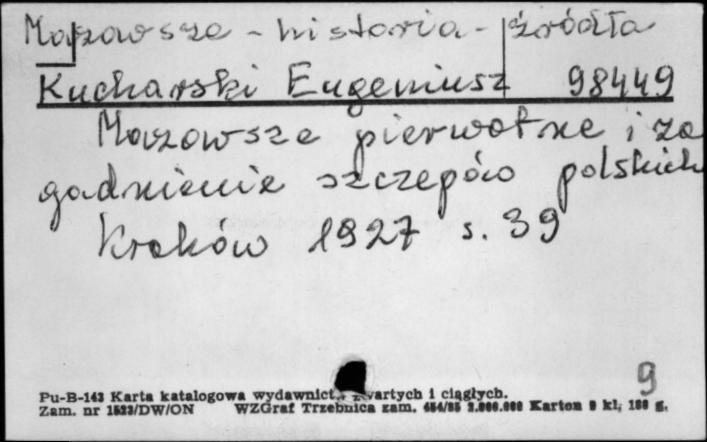 Mazowsze - historia - źródła
Kucharski Eugeniusz 98449
Mazowsze pierwotne i za
gadnienie szczepów polskich
Kraków 1927 s. 39
9
Pu-B-143 Karta katalogowa wydawnictw zwartych i ciągłych.
Zam. nr 1523/DW/ON WZGraf Trzebnica zam. 454/85 2.000.000 Karton 9 kl, 180 g.